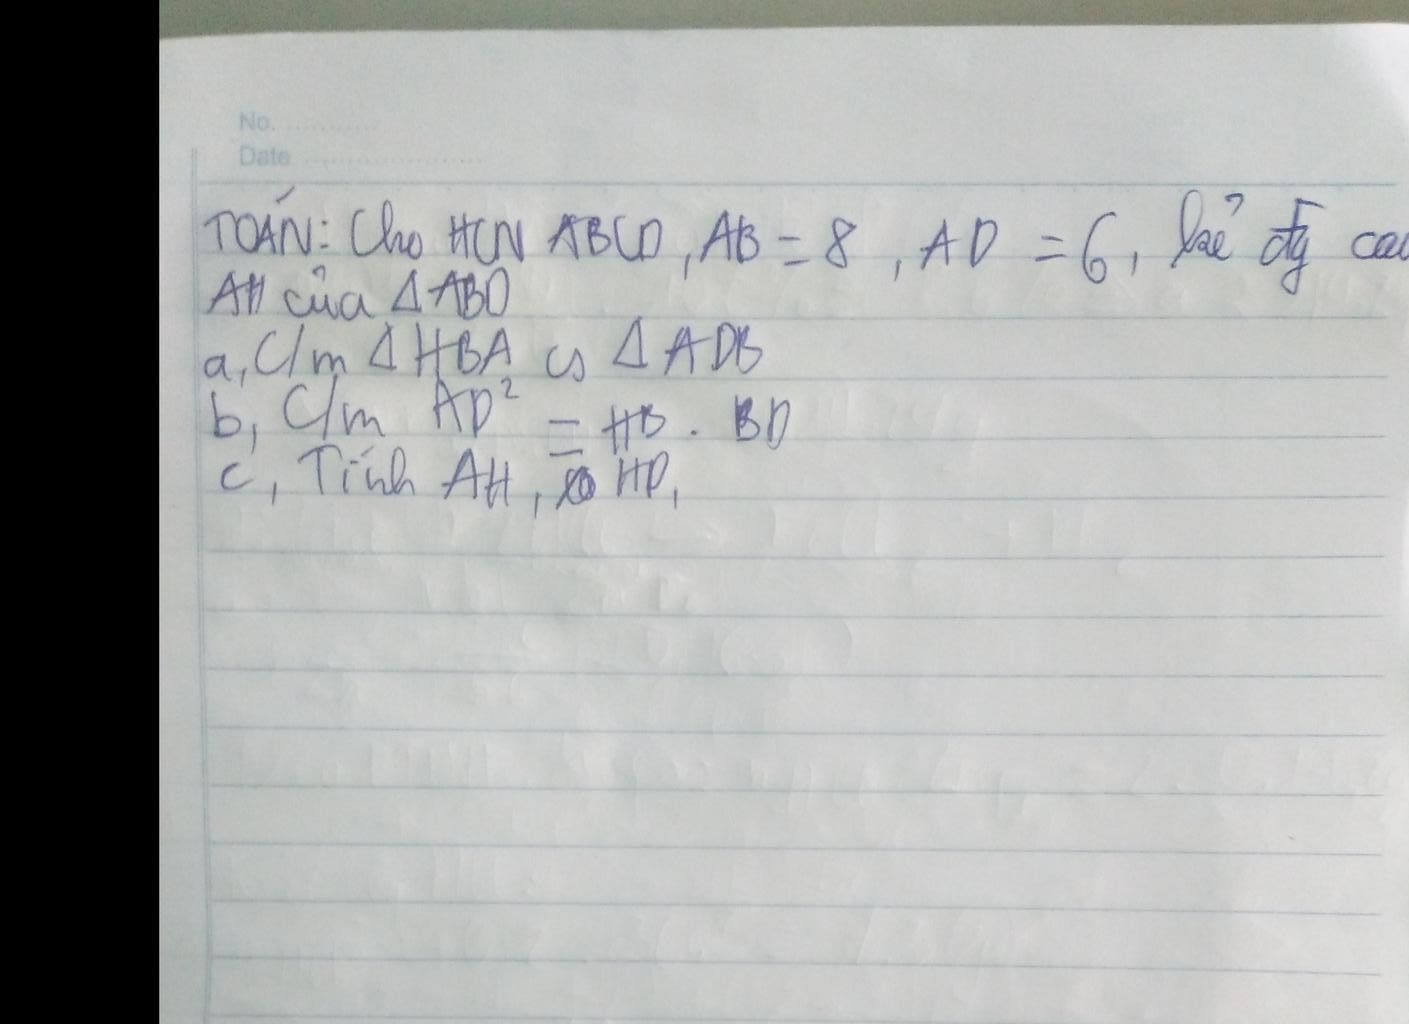 No. ............
Date .......................
TOÁN: Cho HCN ABCD, AB = 8, AD = 6, kẻ đg cao
AH của ΔABD
a, C/m ΔHBA ∽ ΔADB
b, C/m AD² = HB . BD
c, Tính AH, HD,